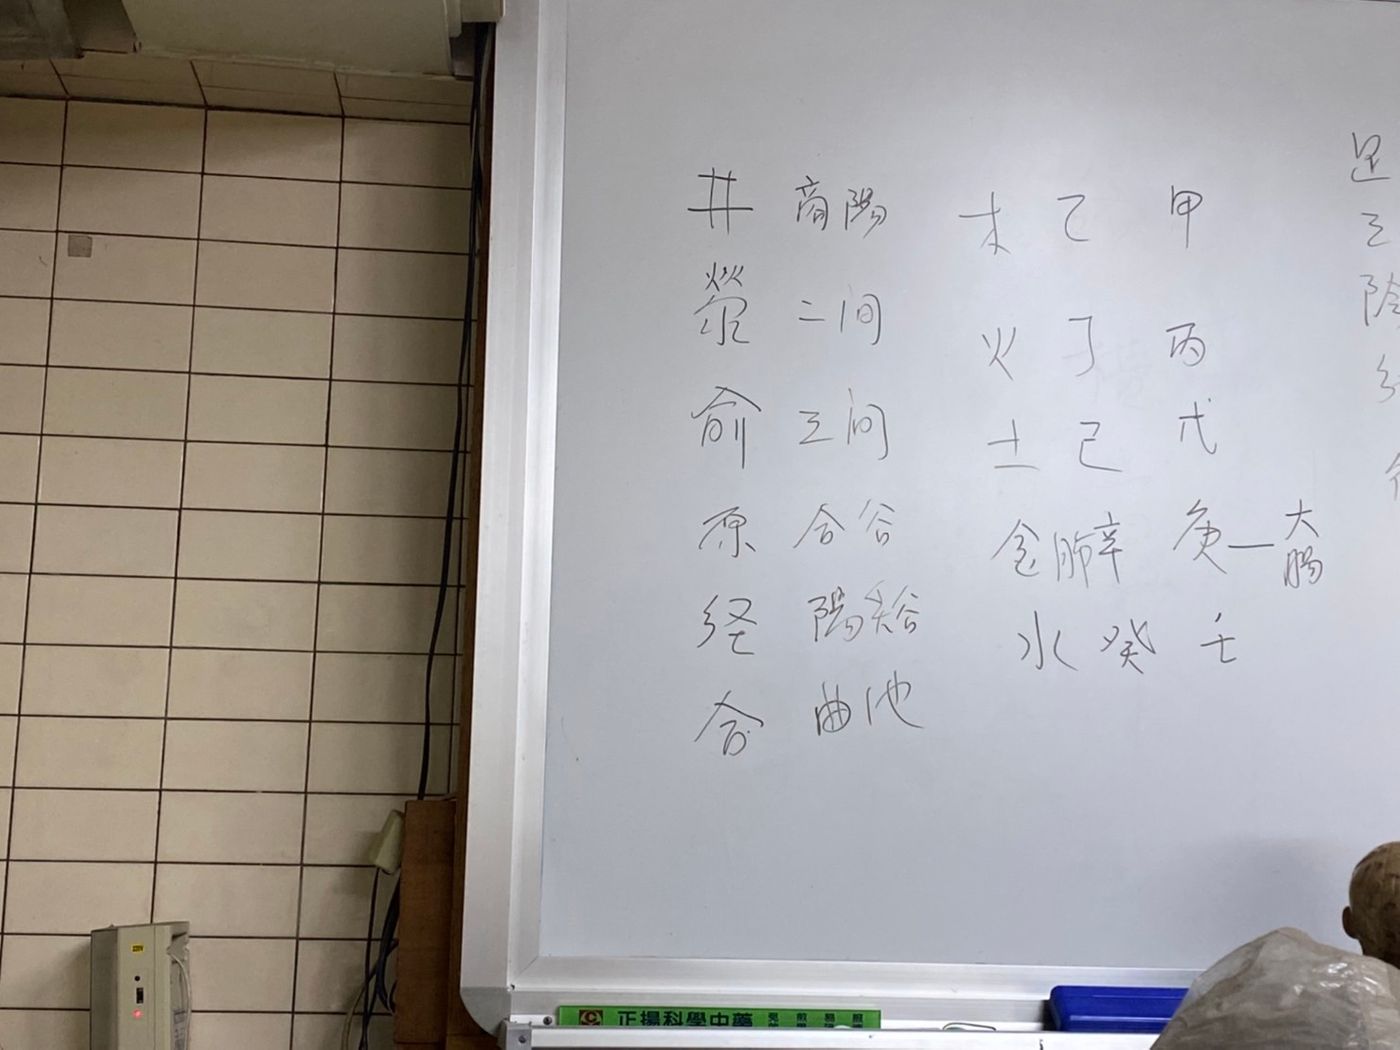 井 商陽 木 乙 甲
滎 二间 火 丁 丙
俞 三间 土 己 戊
原 合谷 金 肺辛 庚—大腸
经 陽谿 水 癸 壬
合 曲池
足
三
陰
正揚科學中藥